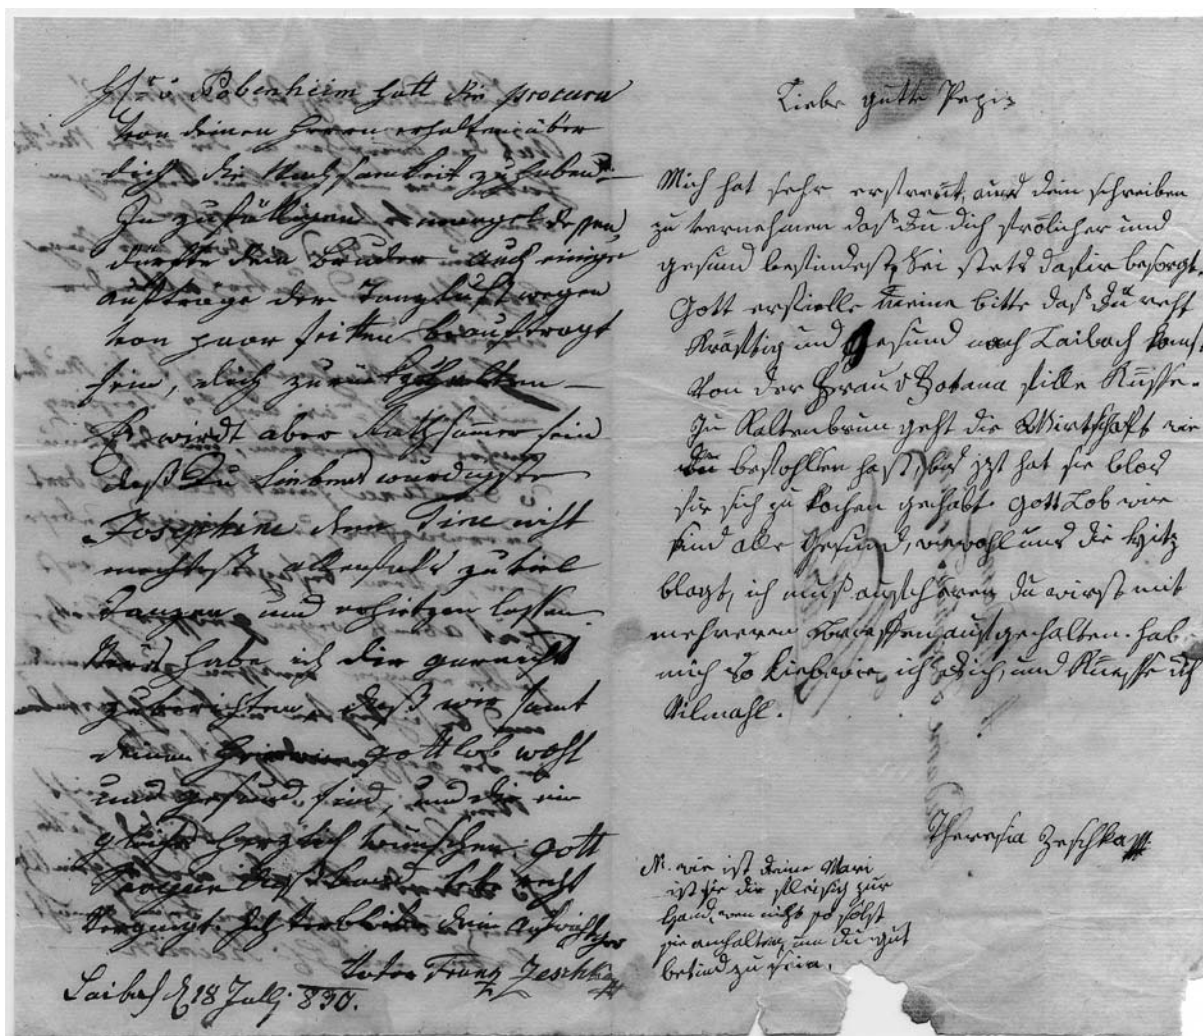 v Pobenheim hatt die procura
von deinen Herrn erhalten über
dich die Wachsamkeit zu haben
In zufälligen mangel dessen
dürfte dein Bruder auch einige
aufträge der Tanzlust wegen
von paar seitten beauftragt
sein, dich zurükzuhalten
Es wirdt aber Rathsamer sein
daß Du liebenswürdigste
Josephine dem Tine nicht
mechtest allenfals zu viel
tanzen und erhitzen lassen
habe ich dir
zu berichten, daß wir samt
deinen gottlob wohl
und gesund sind, und dir ein
gleiches herzlich wunschen gott
recht
vergnügt. Ich verbleibe dein aufrichtiger
Vater Franz Zeschka
Laibach d 18 Jully 830.
Liebe gutte Pepi
Mich hat sehr erfreut, aus dein schreiben
zu vernehmen daß Du dich frölicher und
gesund befindest, Sei stets dafir besorgt
Gott erfielle meine bitte daß Du recht
Kräfftig und gesund nach Laibach komst
Von der Frau v stille Küsse
Zu Kaltenbrun geht die Wirtschaft wie
Du befohllen hast, bis jezt hat sie blos
fir sich zu kochen gehabt. Gott Lob wir
sind alle Gesund, wiewohl uns die Hitz
blagt, ich muß aufhören Du wirst mit
mehreren Brieffen aufgehalten. hab
mich so Lieb wie ich Dich, und Küsse dich
Vilmahl.
Theresia Zeschka
N. wie ist deine Mari
ist sie dir fleisig zur
Hand, wen nicht so solst
sie anhalten um dir gut
zu sein.